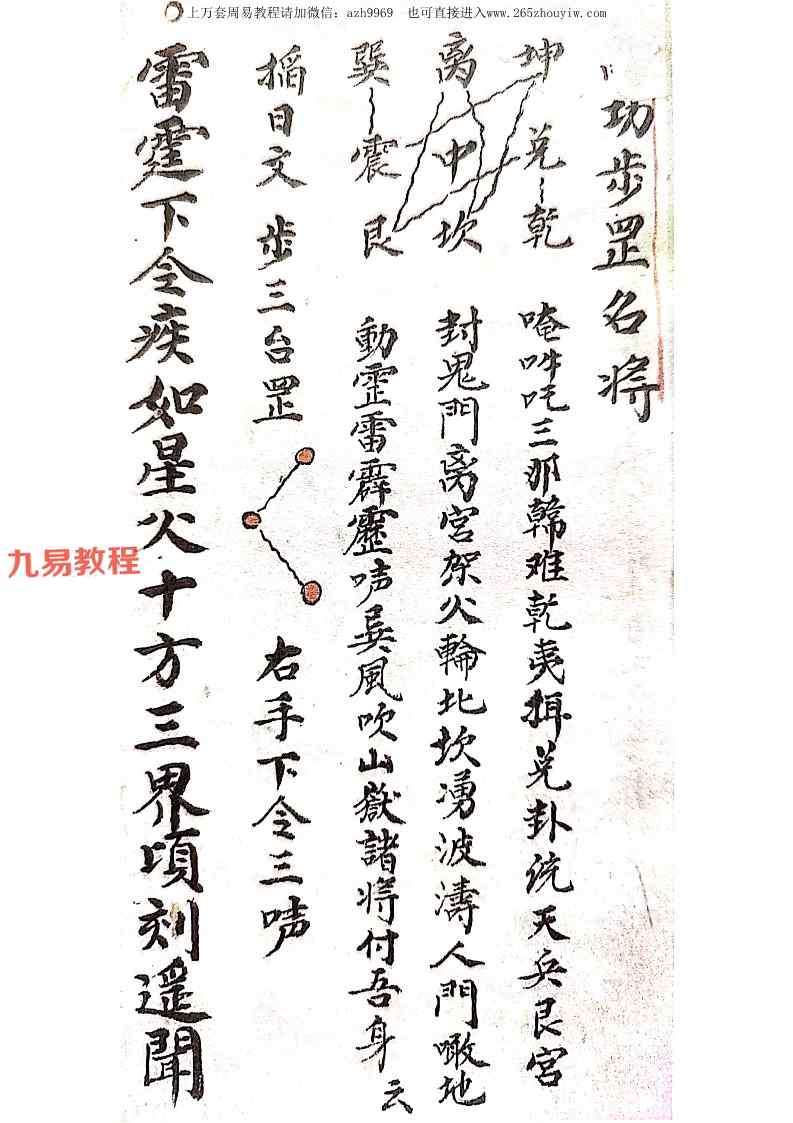 上万套周易教程请加微信：azh9969 也可直接进入www.265zhouyiw.com
功步罡名将
坤 兑 乾
唵吽吒三那韓难乾夷揖兑卦统天兵艮宮
离 中 坎
封鬼門离宮架火輪北坎湧波濤人門噉地
巽 震 艮
動霊雷霹靂吽巽風吹山嶽諸将付吾身 云
搯日文 步三台罡
右手下令三吽
雷霆下令疾如星火十方三界頃刻遥聞
九易教程